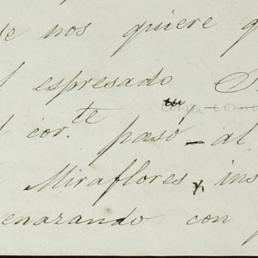 se nos quiere q
l espresado
l cor.te pasó al
Miraflores, ins
enazando con p